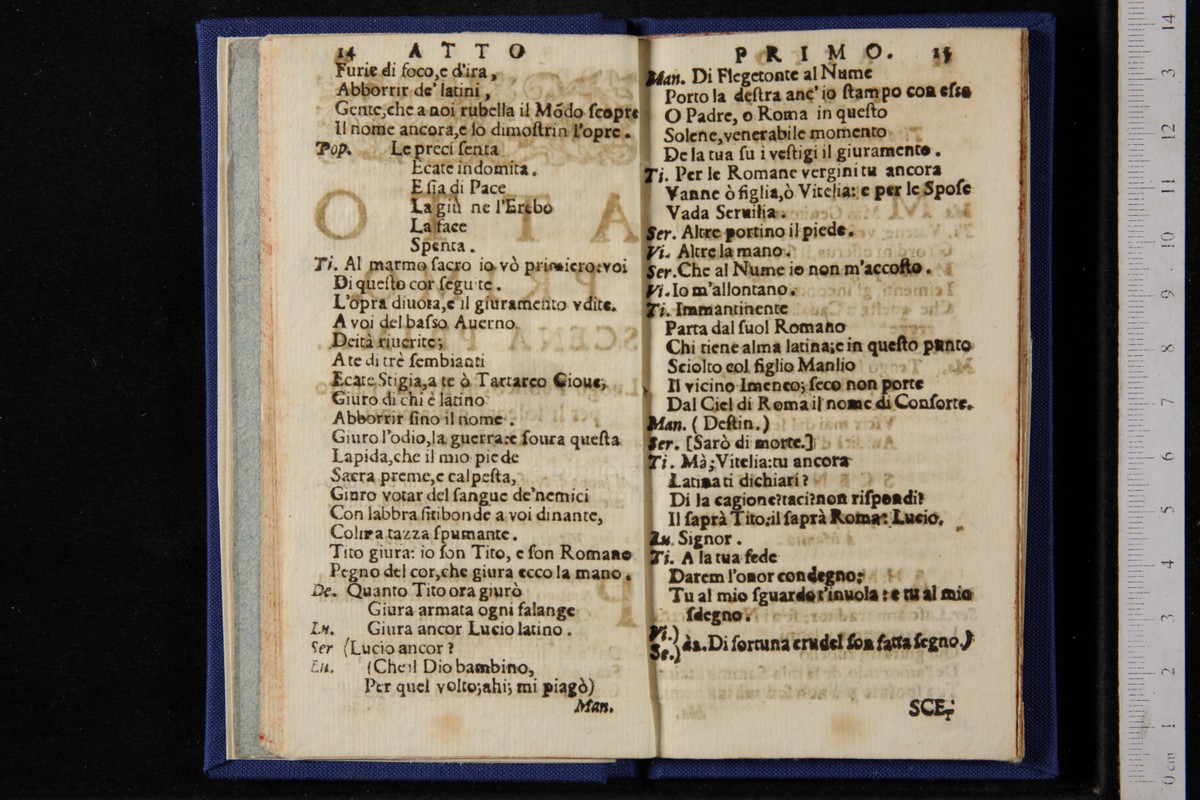 14 ATTO
Furie di foco,e d'ira,
Abborrir de' latini,
Gente,che a noi rubella il Mõdo ſcopre
Il nome ancora,e lo dimoſtrin l'opre.
Pop. Le preci ſenta
Ecate indomita.
E ſia di Pace
La giù ne l'Erebo
La face
Spenta.
Ti. Al marmo ſacro io vò primiero:voi
Di queſto cor ſeguite.
L'opra diuota,e il giuramento vdite.
A voi del baſso Auerno
Deità riuerite;
A te di trè ſembianti
Ecate Stigia,a te ò Tartareo Gioue;
Giuro di chi è latino
Abborrir ſino il nome.
Giuro l'odio,la guerra:e ſoura queſta
Lapida,che il mio piede
Sacra preme,e calpeſta,
Giuro votar del ſangue de'nemici
Con labbra ſitibonde a voi dinante,
Colma tazza ſpumante.
Tito giura: io ſon Tito, e ſon Romano
Pegno del cor,che giura ecco la mano.
De. Quanto Tito ora giurò
Giura armata ogni falange
Lu. Giura ancor Lucio latino.
Ser (Lucio ancor?
Lu. (Che il Dio bambino,
Per quel volto;ahi; mi piagò)
Man.
PRIMO. 15
Man. Di Flegetonte al Nume
Porto la deſtra anc' io ſtampo con eſso
O Padre, o Roma in queſto
Solene,venerabile momento
De la tua ſu i veſtigi il giuramento.
Ti. Per le Romane vergini tu ancora
Vanne ò figlia,ò Vitelia: e per le Spoſe
Vada Seruilia.
Ser. Altre portino il piede.
Vi. Altre la mano.
Ser.Che al Nume io non m'accoſto.
Vi.Io m'allontano.
Ti. Immantinente
Parta dal ſuol Romano
Chi tiene alma latina;e in queſto punto
Sciolto col figlio Manlio
Il vicino Imeneo; ſeco non porte
Dal Ciel di Roma il nome di Conſorte.
Man. ( Deſtin.)
Ser. [Sarò di morte.]
Ti. Mà;Vitelia:tu ancora
Latina ti dichiari?
Di la cagione?taci?non riſpondi?
Il ſaprà Tito;il ſaprà Roma: Lucio.
Lu. Signor.
Ti. A la tua fede
Darem l'onor condegno;
Tu al mio ſguardo t'inuola : e tu al mio
ſdegno.
Vi.)
Se.) à2.Di fortuna crudel ſon fatta ſegno.)
SCE-